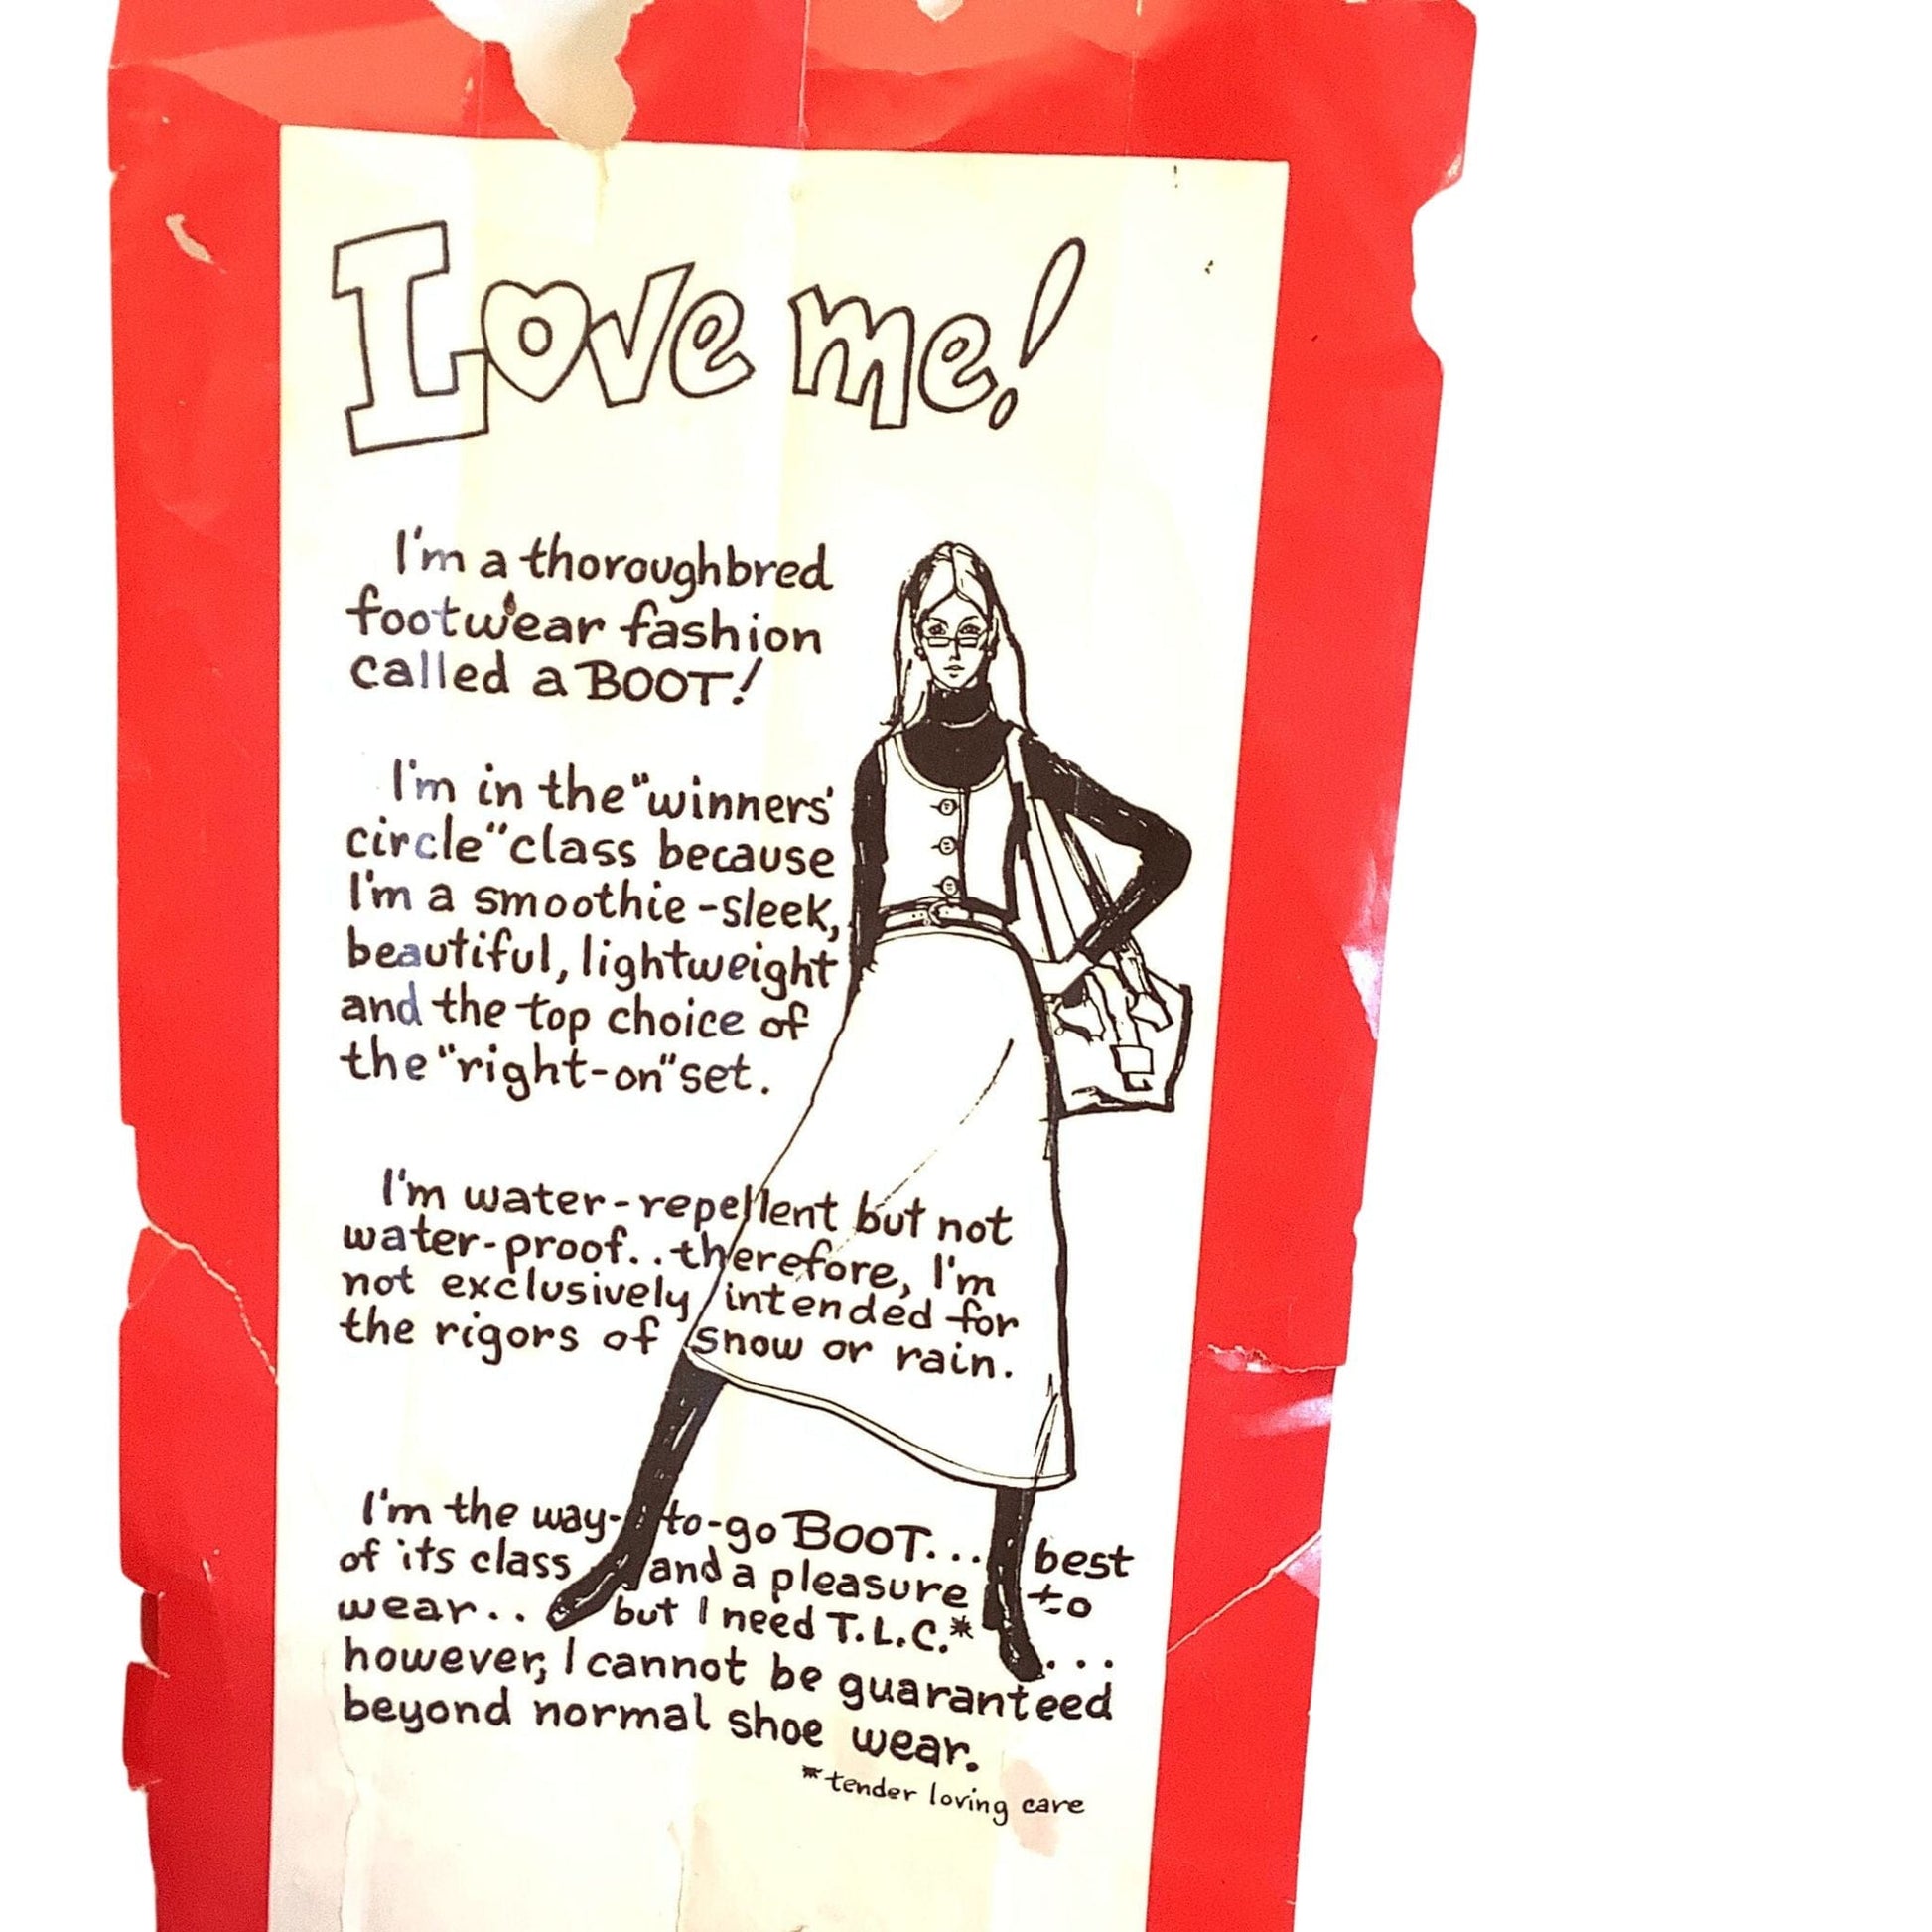 Love me!
I'm a thoroughbred
footwear fashion
called a BOOT!
I'm in the "winners'
circle" class because
I'm a smoothie-sleek,
beautiful, lightweight
and the top choice of
the "right-on" set.
I'm water-repellent but not
water-proof.. therefore, I'm
not exclusively intended for
the rigors of snow or rain.
I'm the way-to-go BOOT... best
of its class and a pleasure to
wear.. but I need T.L.C.* ...
however, I cannot be guaranteed
beyond normal shoe wear.
*tender loving care